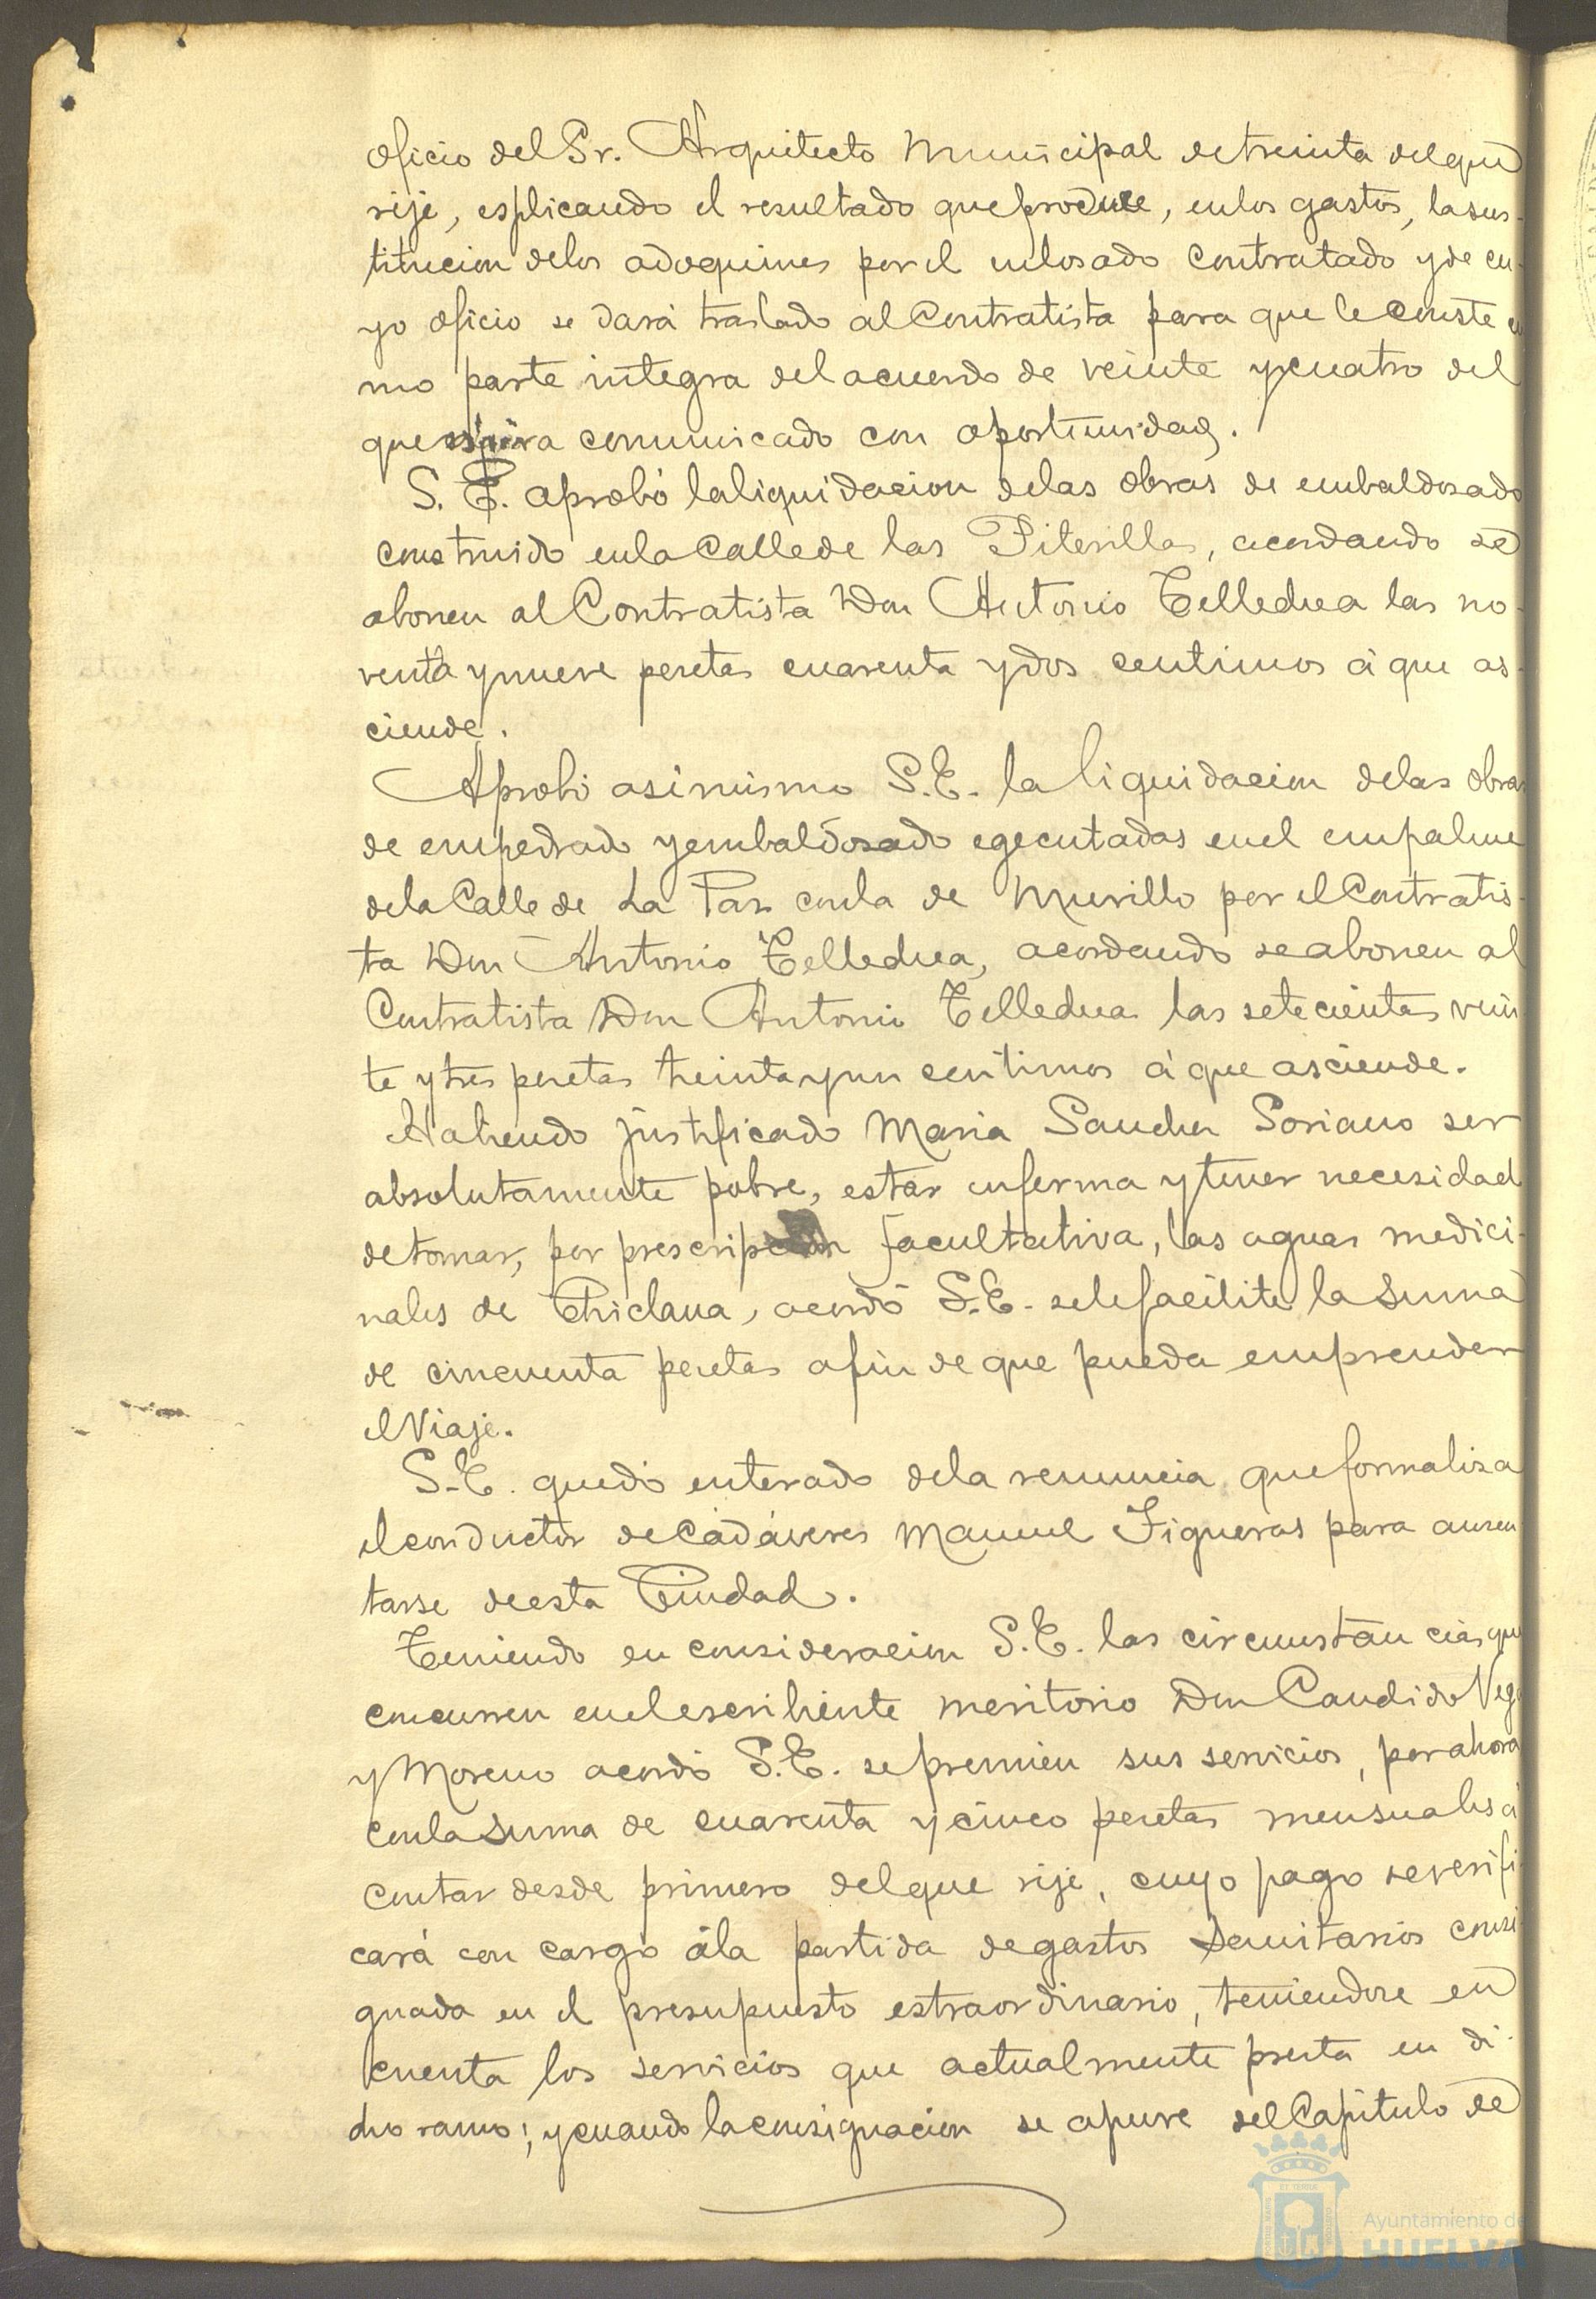 oficio del Sr. Arquitecto Municipal de treinta del que
rije, esplicando el resultado que produce, en los gastos, la sus-
titucion de los adoquines por el enlosado contratado y de cu-
yo oficio se dará traslado al Contratista para que le conste co
mo parte integra del acuerdo de veinte y cuatro del
que espira comunicado con oportunidad.
S. E. aprobó la liquidacion de las obras de embaldosado
construido en la Calle de las Piterillas, acordando se
abonen al Contratista Don Antonio Telledua las no-
venta y nueve pesetas cuarenta y dos centimos á que as-
ciende.
Aprobó asimismo S.E. la liquidacion de las obras
de empedrado y embaldosado egecutadas en el empalme
de la Calle de La Paz con la de Murillo por el Contratis-
ta Don Antonio Telledua, acordando se abonen al
Contratista Don Antonio Telledua las setecientas vein
te y tres pesetas treinta y un centimos á que asciende.
Habiendo justificado Maria Sanchez Soriano ser
absolutamente pobre, estar enferma y tener necesidad
de tomar, por prescripcion facultativa, las aguas medici-
nales de Chiclana, acordó S.E. se le facilite la suma
de cincuenta pesetas a fin de que pueda emprender
el Viaje.
S.E. quedó enterado de la renuncia que formaliza
el conductor de Cadáveres Manuel Figueras para ausen
tarse de esta Ciudad.
Teniendo en consideracion S.E. las circunstancias que
concurren en el escribiente meritorio Don Candido Vega
y Moreno acordó S.E. se premien sus servicios, por ahora
con la suma de cuarenta y cinco pesetas mensuales á
contar desde primero del que rije, cuyo pago se verifi
cará con cargo á la partida de gastos Sanitarios consi
gnada en el presupuesto estraordinario, teniendose en
cuenta los servicios que actualmente presta en di-
cho ramo; y cuando la consignacion se apure del Capitulo de
Ayuntamiento de
HUELVA